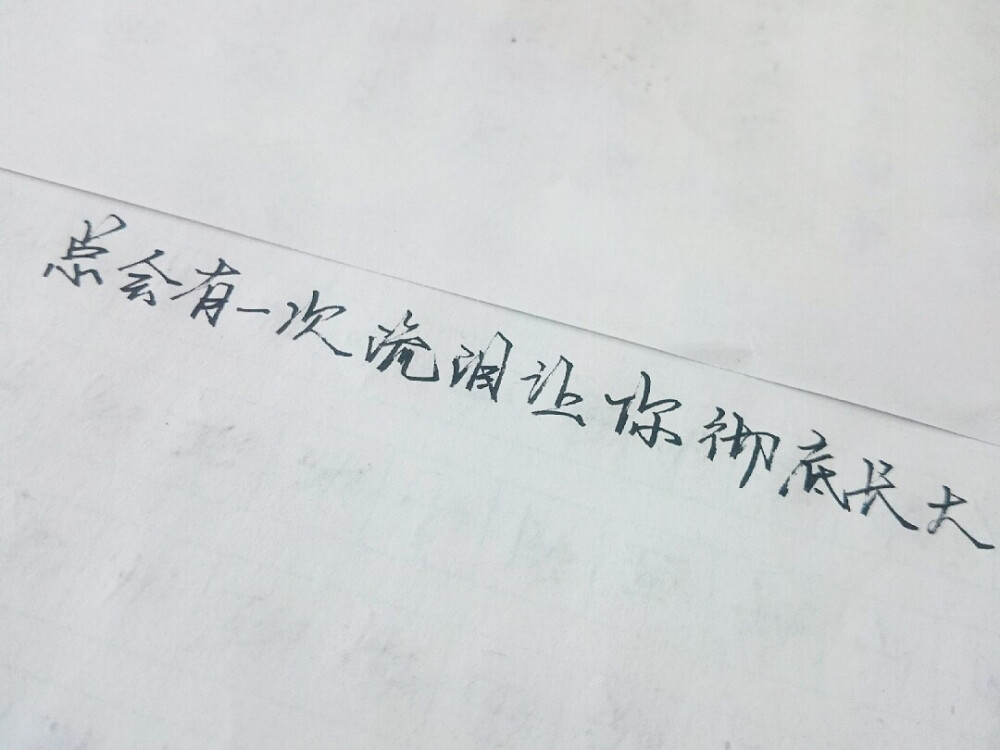 总会有一次流泪让你彻底长大